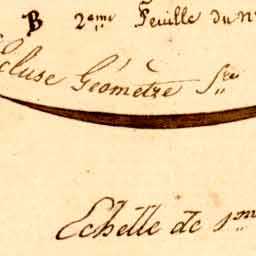 B 2eme Feuille du n
Ecluse Géomètre Sre
Echelle de 1 m